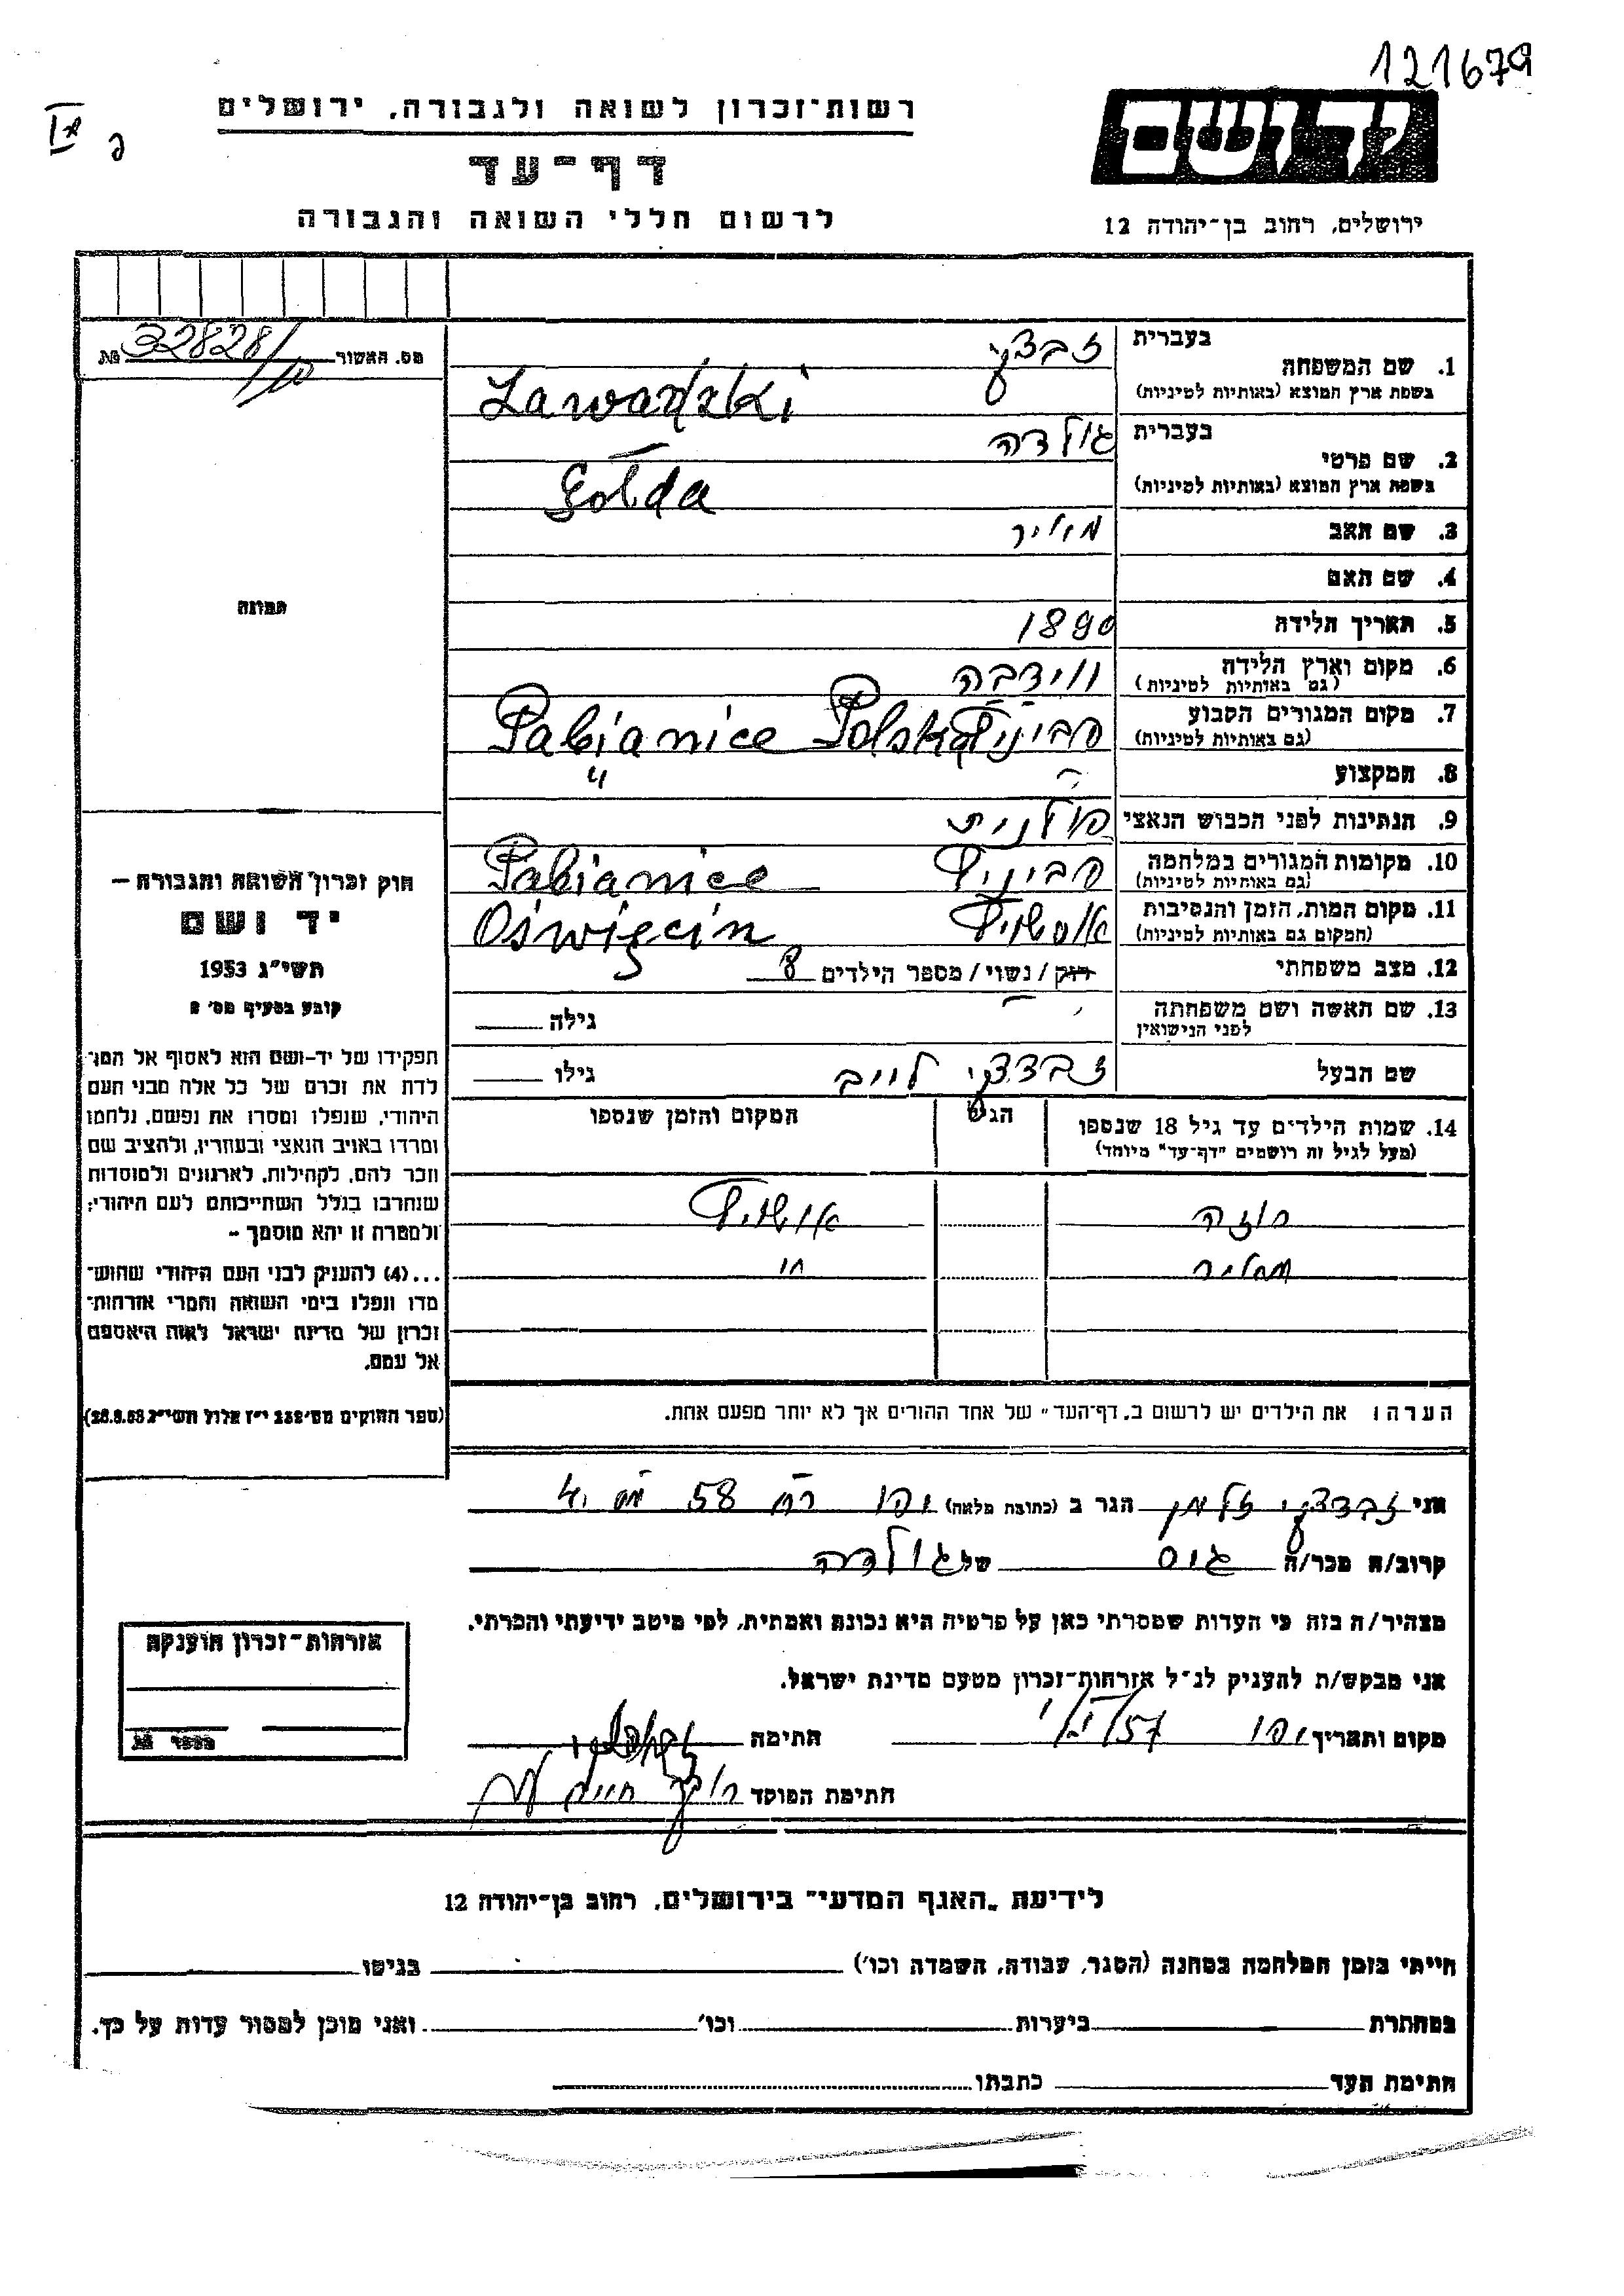 121679
רשות־זכרון לשואה ולגבורה, ירושלים
דף־עד
לרשום חללי השואה והגבורה
יד ושם
ירושלים, רחוב בן־יהודה 12
מס. האשור 32828/10 №
1. שם המשפחה
בעברית
(בשפת ארץ המוצא (באותיות לטיניות
Zawadzki
2. שם פרטי
בעברית גולדה
(בשפת ארץ המוצא (באותיות לטיניות
Gołda
3. שם האב
4. שם האם
5. תאריך הלידה 1890
6. מקום וארץ הלידה
(גם באותיות לטיניות)
7. מקום המגורים הקבוע Pabianice Polska
(גם באותיות לטיניות)
8. המקצוע
9. הנתינות לפני הכבוש הנאצי פולנית
10. מקומות המגורים במלחמה Pabianice
(גם באותיות לטיניות)
11. מקום המות, הזמן והנסיבות Oświęcin
(המקום גם באותיות לטיניות)
12. מצב משפחתי רוק / נשוי / מספר הילדים 8
13. שם האשה ושם משפחתה גילה
לפני הנישואין
שם הבעל זבדצקי לייב גילו
14. שמות הילדים עד גיל 18 שנספו הגיל המקום והזמן שנספו
(מעל לגיל זה רושמים "דף־עד" מיוחד)
רוזה
תמונה
חוק זכרון השואה והגבורה —
יד ושם
תשי"ג 1953
קובע בסעיף מס' 2
תפקידו של יד-ושם הוא לאסוף אל המו־
לדת את זכרם של כל אלה מבני העם
היהודי, שנפלו ומסרו את נפשם, נלחמו
ומרדו באויב הנאצי ובעוזריו, ולהציב שם
וזכר להם, לקהילות, לארגונים ולמוסדות
שנחרבו בגלל השתייכותם לעם היהודי;
ולמטרה זו יהא מוסמך –
...(4) להעניק לבני העם היהודי שהוש־
מדו ונפלו בימי השואה והמרי אזרחות־
זכרון של מדינת ישראל לאות היאספם
אל עמם.
(ספר החוקים מס' 132 י"ז אלול תשי"ג 28.8.53)
הערה: את הילדים יש לרשום ב„דף־העד" של אחד ההורים אך לא יותר מפעם אחת.
אני זבדצקי זלמן הגר ב (כתובת מלאה) יפו רח 58 מס 4
קרוב/ה מכר/ה גיס של גולדה
מצהיר/ה בזה כי העדות שמסרתי כאן על פרטיה היא נכונה ואמתית, לפי מיטב ידיעתי והכרתי.
אני מבקש/ת להעניק לנ"ל אזרחות־זכרון מטעם מדינת ישראל.
מקום ותאריך יפו חתימה
חתימת הפוקד
אזרחות־זכרון הוענקה
מספר №
לידיעת „האגף המדעי" בירושלים, רחוב בן־יהודה 12
הייתי בזמן המלחמה במחנה (הסגר, עבודה, השמדה וכו') בגיטו
במחתרת ביערות וכו' ואני מוכן למסור עדות על כך.
חתימת העד כתבתו